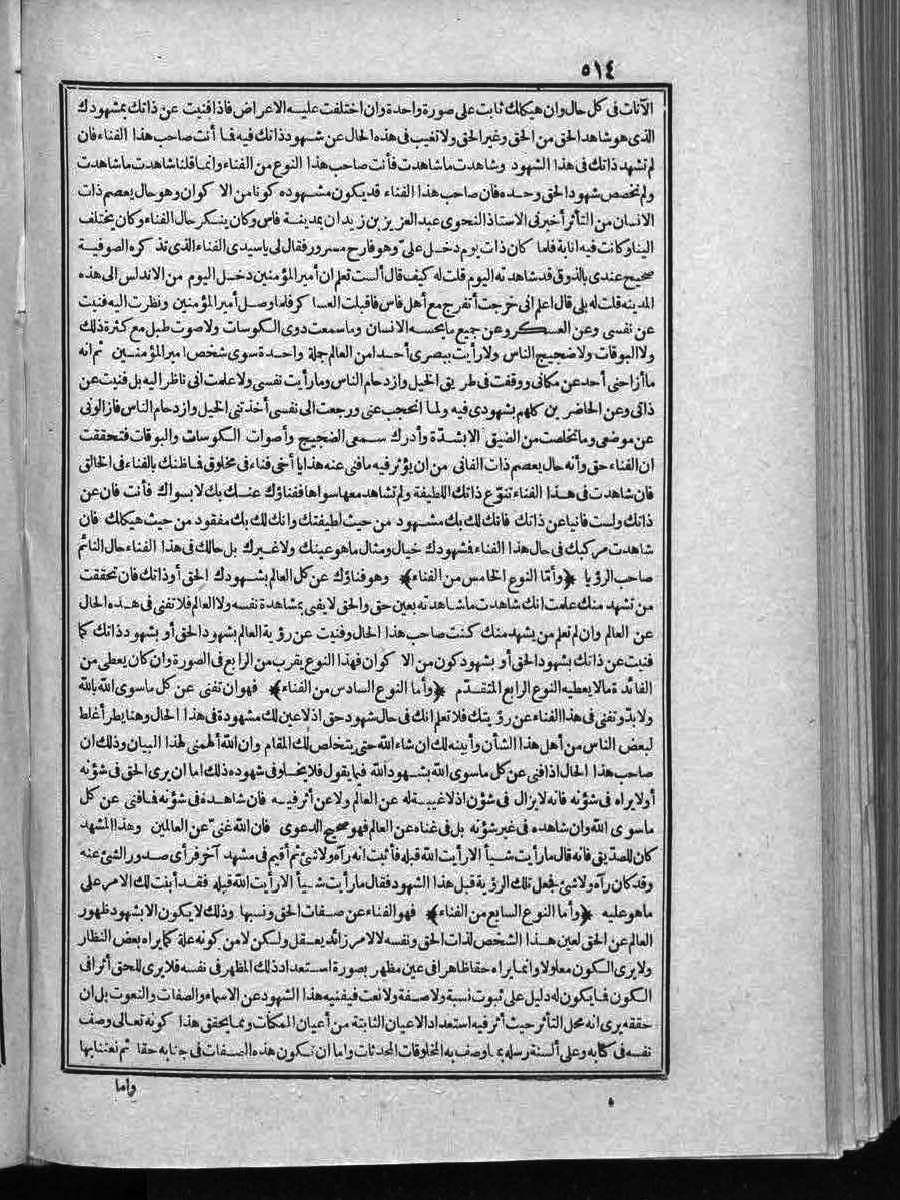 ٥١٤
الآنات فى كل حال وان هيكلك ثابت على صورة واحدة وان اختلفت عليه الاعراض فاذا فنيت عن ذاتك بمشهودك
الذى هو شاهد الحق من الحق وغير الحق ولا تغيب فى هذه الحال عن شهود ذاتك فيه فما أنت صاحب هذا الفناء فان
لم تشهد ذاتك فى هذا الشهود وشاهدت ما شاهدت فأنت صاحب هذا النوع من الفناء وانما قلنا شاهدت ما شاهدت
ولم نخصص شهود الحق وحده فان صاحب هذا الفناء قد يكون مشهوده كونا من الا كوان وهو حال يعصم ذات
الانسان من التأثر أخبرنى الاستاذ النحوى عبد العزيز بن زيدان بمدينة فاس وكان ينكر حال الفناء وكان يختلف
الينا وكانت فيه انابة فلما كان ذات يوم دخل علىّ وهو فارح مسرور فقال لى ياسيدى الفناء الذى تذ كره الصوفية
صحيح عندى بالذوق قد شاهدته اليوم قلت له كيف قال ألست تعلم ان أمير المؤمنين دخل اليوم من الاندلس الى هذه
المدينه قلت له بلى قال اعلم انى خرجت أتفرج مع أهل فاس فاقبلت العسا كر فلما وصل أمير المؤمنين ونظرت اليه فنيت
عن نفسى وعن العسكر وعن جميع ما يحسه الانسان وما سمعت دوى الكوسات ولا صوت طبل مع كثرة ذلك
ولا البوقات ولا ضجيج الناس ولا رأيت ببصرى أحدا من العالم جلة واحدة سوى شخص امير المؤمنين ثم انه
ما أزاحنى أحد عن مكانى ووقفت فى طريق الخيل وازدحام الناس وما رأيت نفسى ولا علمت انى ناظر اليه بل فنيت عن
ذاتى وعن الحاضرين كلهم بشهودى فيه ولما انحجب عنى ورجعت الى نفسى أخذتنى الخيل وازدحام الناس فازالونى
عن موضعى وما تخلصت من الضيق الا بشدّة وأدرك سمعى الضجيج وأصوات الكوسات والبوقات فتحققت
ان الفناء حق وأنه حال يعصم ذات الفانى من ان يؤثر فيه ما فنى عنه هذا يا أخى فناء فى مخلوق فما ظنك بالفناء فى الخالق
فان شاهدت فى هذا الفناء تنوّع ذاتك اللطيفة ولم تشاهد معها سواها ففناؤك عنك بك لا بسواك فأنت فان عن
ذاتك ولست فانيا عن ذاتك فانك لك بك مشهود من حيث لطيفتك وانك لك بك مفقود من حيث هيكلك فان
شاهدت مركبك فى حال هذا الفناء فشهودك خيال ومثال ما هو عينك ولا غيرك بل حالك فى هذا الفناء حال النائم
صاحب الرؤيا ﴿وأمّا النوع الخامس من الفناء﴾ وهو فناؤك عن كل العالم بشهودك الحق أو ذاتك فان تحققت
من تشهد منك علمت انك شاهدت ما شاهدته بعين حق والحق لا يفنى بمشاهدة نفسه ولا العالم فلا تفنى فى هذه الحال
عن العالم وان لم تعلم من يشهد منك كنت صاحب هذا الحال وفنيت عن رؤية العالم بشهود الحق أو بشهود ذاتك كما
فنيت عن ذاتك بشهود الحق أو بشهود كون من الا كوان فهذا النوع يقرب من الرابع فى الصورة وان كان يعطى من
الفائدة مالا يعطيه النوع الرابع المتقدّم ﴿وأما النوع السادس من الفناء﴾ فهو ان تفنى عن كل ما سوى الله بالله
ولا بدّ وتفنى فى هذا الفناء عن رؤيتك فلا تعلم انك فى حال شهود حق اذ لا عين لك مشهودة فى هذا الحال وهنا يطرأ غلط
لبعض الناس من أهل هذا الشأن وأبينه لك ان شاء الله حتى يتخلص لك المقام وان الله ألهمنى لهذا البيان وذلك ان
صاحب هذا الحال اذا فنى عن كل ما سوى الله بشهود الله فيما يقول فلا يخلو فى شهوده ذلك اما ان يرى الحق فى شؤنه
أو لا يراه فى شؤنه فانه لا يزال فى شؤن اذ لا غيبة له عن العالم ولا عن أثر فيه فان شاهده فى شؤنه فما فنى عن كل
ما سوى الله وان شاهده فى غير شؤنه بل فى غناه عن العالم فهو صحيح الدعوى فان الله غنىّ عن العالمين وهذا المشهد
كان للصدّيق فانه قال ما رأيت شيأ الا رأيت الله قبله فأثبت انه رآه ولا شئ ثم أقيم فى مشهد آخر فرأى صدور الشئ عنه
وقد كان رآه ولا شئ فجعل تلك الرؤية قبل هذا الشهود فقال ما رأيت شيأ الا رأيت الله قبله فقد أبنت لك الامر على
ما هو عليه ﴿وأما النوع السابع من الفناء﴾ فهو الفناء عن صفات الحق ونسبها وذلك لا يكون الا بشهود ظهور
العالم عن الحق لعين هذا الشخص لذات الحق ونفسه لا لامر زائد يعقل ولكن لا من كونه علة كما يراه بعض النظار
ولا يرى الكون معلولا وانما يراه حقا ظاهرا فى عين مظهر بصورة استعداد ذلك المظهر فى نفسه فلا يرى للحق أثرا فى
الكون فما يكون له دليل على ثبوت نسبة ولا صفة ولا نعت فيفنيه هذا الشهود عن الاسماء والصفات والنعوت بل ان
حققه يرى انه محل التأثر حيث أثر فيه استعداد الاعيان الثابتة من أعيان الممكنات ومما يحقق هذا كونه تعالى وصف
نفسه فى كتابه وعلى ألسنة رسله بما وصف به المخلوقات المحدثات واما ان تكون هذه الصفات فى جنابه حقا ثم نعتنا بها
واما